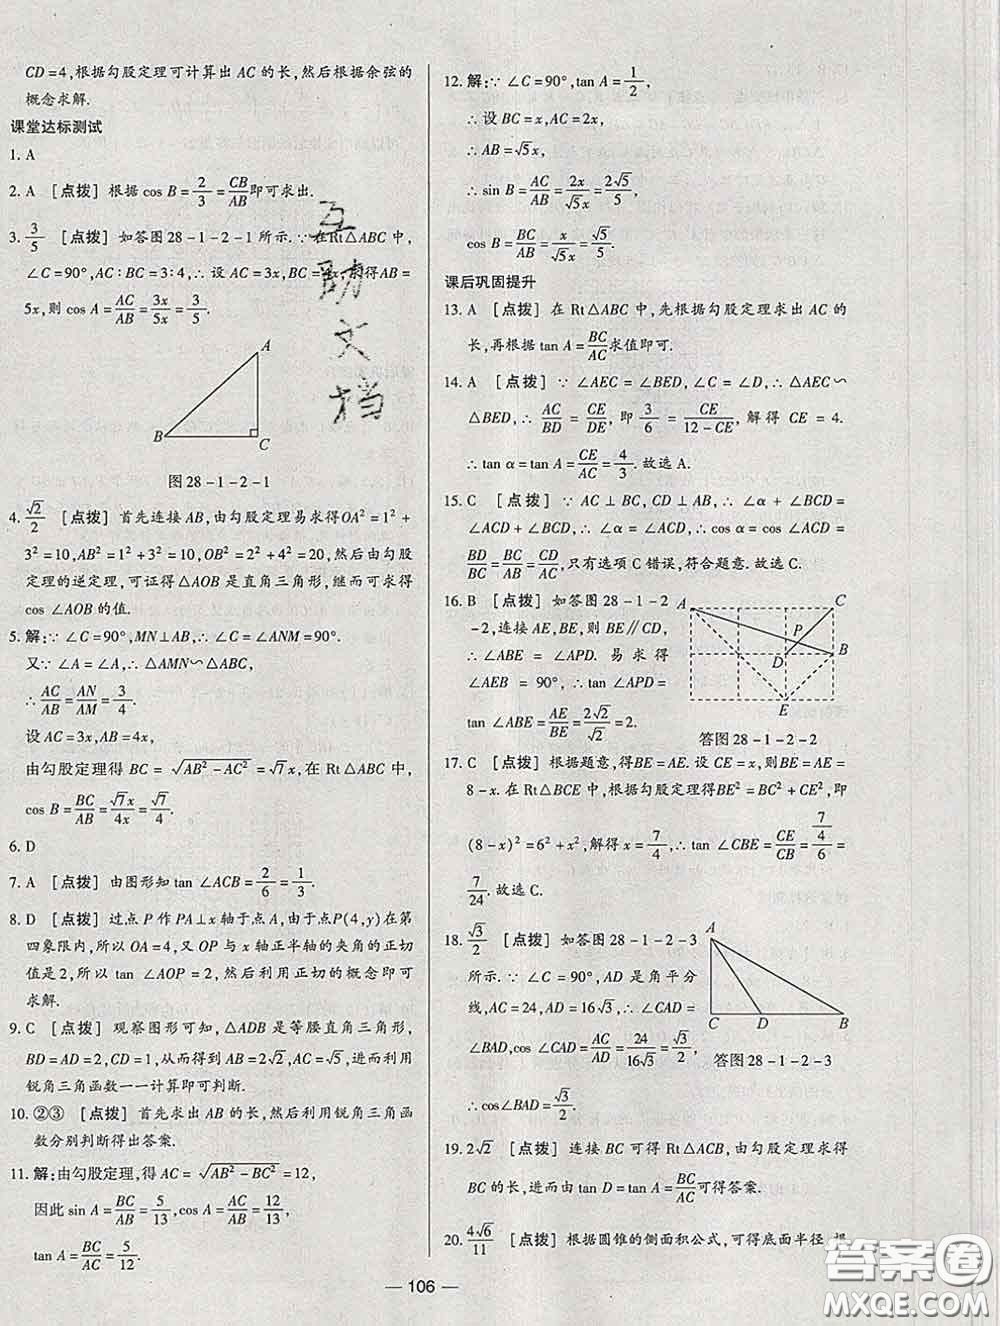 CD=4,根据勾股定理可计算出 AC 的长,然后根据余弦的
概念求解.
课堂达标测试
1. A
2. A [点拨] 根据 cos B=2/3=CB/AB即可求出.
3. 3/5 [点拨] 如答图 28-1-2-1 所示.∵在Rt△ABC 中,
∠C=90°,AC∶BC=3∶4,∴设 AC=3x,BC=
得AB=
5x,则 cos A=AC/AB=3x/5x=3/5.
A
B
C
图 28-1-2-1
4. √2/2 [点拨] 首先连接 AB,由勾股定理易求得OA²=1²+
3²=10,AB²=1²+3²=10,OB²=2²+4²=20,然后由勾股
定理的逆定理,可证得△AOB 是直角三角形,继而可求得
cos ∠AOB 的值.
5. 解:∵∠C=90°,MN⊥AB,∴∠C=∠ANM=90°.
又∵∠A=∠A,∴△AMN∽△ABC,
∴AC/AB=AN/AM=3/4.
设 AC=3x,AB=4x,
由勾股定理得 BC=√(AB²-AC²)=√7x,在 Rt△ABC 中,
cos B=BC/AB=√7x/4x=√7/4.
6. D
7. A [点拨] 由图形知 tan ∠ACB=2/6=1/3.
8. D [点拨] 过点 P 作 PA⊥x 轴于点 A,由于点P(4,y)在第
四象限内,所以 OA=4,又 OP 与 x 轴正半轴的夹角的正切
值是2,所以 tan ∠AOP=2,然后利用正切的概念即可
求解.
9. C [点拨] 观察图形可知,△ADB 是等腰直角三角形,
BD=AD=2,CD=1,从而得到 AB=2√2,AC=√5,进而利用
锐角三角函数一一计算即可判断.
10. ②③ [点拨] 首先求出 AB 的长,然后利用锐角三角函
数分别判断得出答案.
11. 解:由勾股定理,得 AC=√(AB²-BC²)=12,
因此 sin A=BC/AB=5/13,cos A=AC/AB=12/13,
tan A=BC/AC=5/12.
12. 解:∵∠C=90°,tan A=1/2,
∴设 BC=x,AC=2x,
∴AB=√5x,
∴sin B=AC/AB=2x/√5x=2√5/5,
cos B=BC/AB=x/√5x=√5/5.
课后巩固提升
13. A [点拨] 在 Rt△ABC 中,先根据勾股定理求出 AC 的
长,再根据 tan A=BC/AC求值即可.
14. A [点拨] ∵∠AEC=∠BED,∠C=∠D,∴△AEC∽
△BED,∴AC/BD=CE/DE,即3/6=CE/(12-CE),解得 CE=4.
∴tan α=tan A=CE/AC=4/3.故选A.
15. C [点拨] ∵AC⊥BC,CD⊥AB,∴∠α+∠BCD=
∠ACD+∠BCD,∴∠α=∠ACD,∴cos α=cos ∠ACD=
BD/BC=BC/AB=CD/AC,只有选项 C 错误,符合题意.故选 C.
16. B [点拨] 如答图 28-1-2
-2,连接 AE,BE,则 BE∥CD,
∴∠ABE=∠APD.易求得
∠AEB=90°,∴tan ∠APD=
tan ∠ABE=AE/BE=2√2/√2=2.
A
C
P
D
B
E
答图 28-1-2-2
17. C [点拨] 根据题意,得BE=AE.设 CE=x,则 BE=AE=
8-x.在 Rt△BCE 中,根据勾股定理得BE²=BC²+CE²,即
(8-x)²=6²+x²,解得 x=7/4,∴tan ∠CBE=CE/CB=(7/4)/6=
7/24.故选 C.
18. √3/2 [点拨] 如答图 28-1-2-3
所示.∵∠C=90°,AD 是角平分
线,AC=24,AD=16√3,∴∠CAD=
∠BAD,cos ∠CAD=AC/AD=24/16√3=√3/2,
∴cos∠BAD=√3/2.
A
C
D
B
答图 28-1-2-3
19. 2√2 [点拨] 连接 BC 可得 Rt△ACB,由勾股定理求得
BC 的长,进而由 tan D=tan A=BC/AC可得答案.
20. 4√6/11 [点拨] 根据圆锥的侧面积公式,可得底面半径.
106
互助文档
答案圈
MXQE.COM